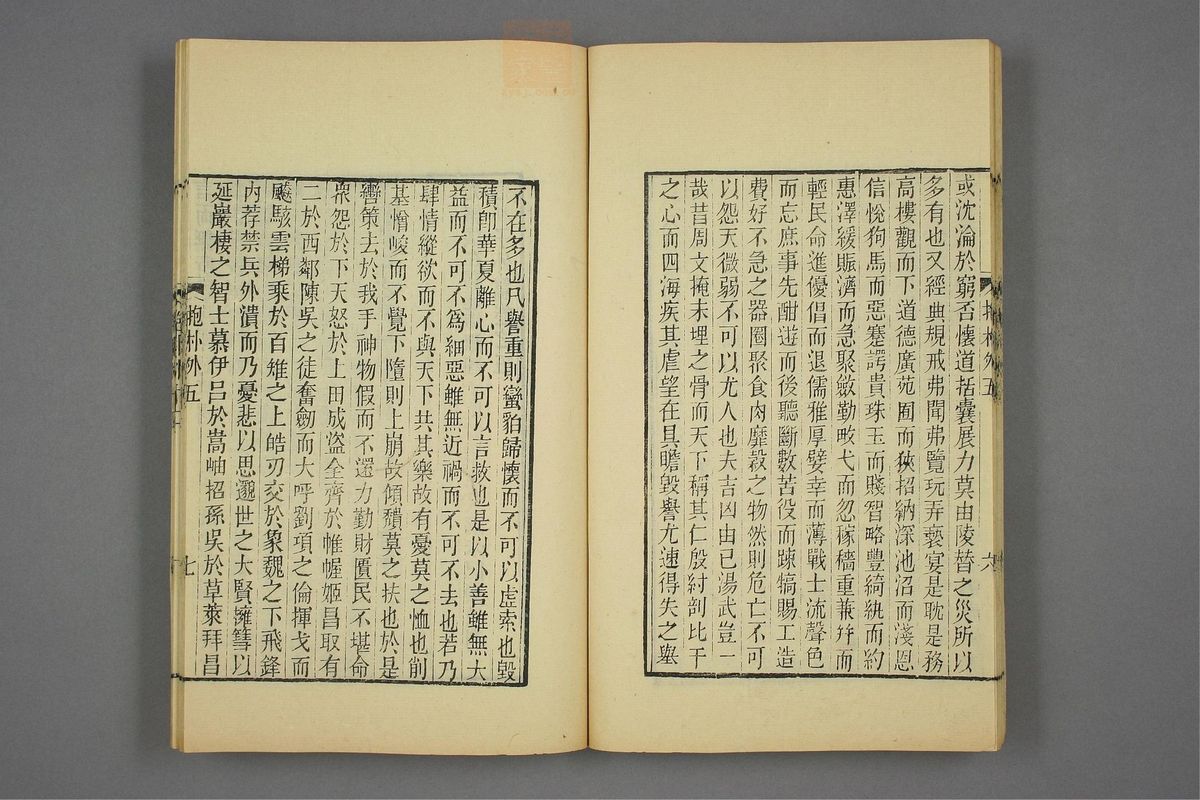 或沈淪於窮否懷道括囊展力莫由陵替之災所以
多有也又經典規戒弗聞弗覽玩弄褻宴是耽是務
高樓觀而下道德廣苑囿而狹招納深池沼而淺恩
信悅狗馬而惡蹇諤貴珠玉而賤智略豐綺紈而約
惠澤緩賑濟而急聚斂勤畋弋而忽稼穡重兼幷而
輕民命進優倡而退儒雅厚嬖幸而薄戰士流聲色
而忘庶事先酣遊而後聽斷數苦役而踈犒賜工造
費好不急之器圈聚食肉靡榖之物然則危亡不可
以怨天微弱不可以尤人也夫吉凶由已湯武豈一
哉昔周文掩未埋之骨而天下稱其仁殷紂剖比干
之心而四海疾其虐望在具瞻毀譽尤速得失之舉
抱朴外五
六
不在多也凡譽重則蠻貊歸懷而不可以虛索也毀
積卽華夏離心而不可以言救也是以小善雖無大
益而不可不爲細惡雖無近禍而不可不去也若乃
肆情縱欲而不與天下共其樂故有憂莫之恤也削
基憎峻而不覺下墮則上崩故傾頽莫之扶也於是
轡策去於我手神物假而不還力勤財匱民不堪命
衆怨於下天怒於上田成盗全齊於帷幄姬昌取有
二於西鄰陳吳之徒奮劒而大呼劉項之倫揮戈而
飈駭雲梯乘於百雉之上皓刃交於象魏之下飛鋒
內荐禁兵外潰而乃憂悲以思邈世之大賢擁篲以
延巖棲之智士慕伊呂於嵩岫招孫吳於草萊拜昌
抱朴外五
七